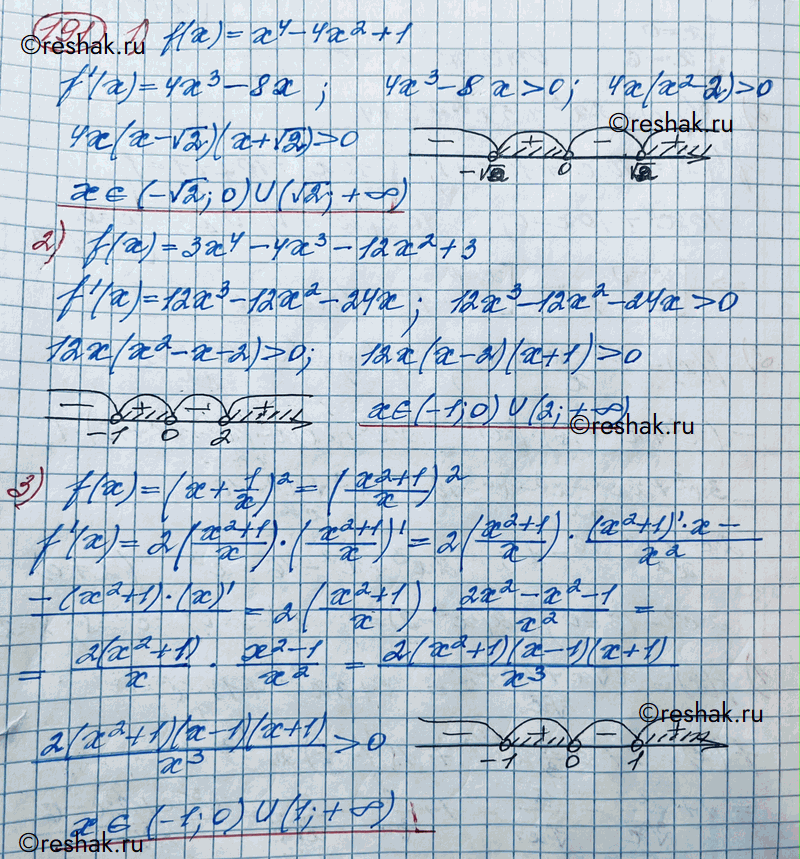 191 1) f(x) = x⁴ - 4x² + 1
©reshak.ru
f'(x) = 4x³ - 8x ; 4x³ - 8x > 0; 4x(x² - 2) > 0
©reshak.ru
4x(x - √2)(x + √2) > 0 - + - +
-√2 0 √2
x ∈ (-√2; 0) ∪ (√2; +∞)
2) f(x) = 3x⁴ - 4x³ - 12x² + 3
f'(x) = 12x³ - 12x² - 24x ; 12x³ - 12x² - 24x > 0
12x(x² - x - 2) > 0; 12x(x - 2)(x + 1) > 0
- + - + x ∈ (-1; 0) ∪ (2; +∞)
-1 0 2 ©reshak.ru
3) f(x) = (x + 1/x)² = ((x² + 1)/x)²
f'(x) = 2((x² + 1)/x) · ((x² + 1)/x)' = 2((x² + 1)/x) · ((x² + 1)' · x -)/x²
(- (x² + 1) · (x)') = 2((x² + 1)/x) · (2x² - x² - 1)/x² =
= 2(x² + 1)/x · (x² - 1)/x² = 2(x² + 1)(x - 1)(x + 1)/x³
©reshak.ru
2(x² + 1)(x - 1)(x + 1)/x³ > 0 - + - +
-1 0 1
x ∈ (-1; 0) ∪ (1; +∞)
©reshak.ru